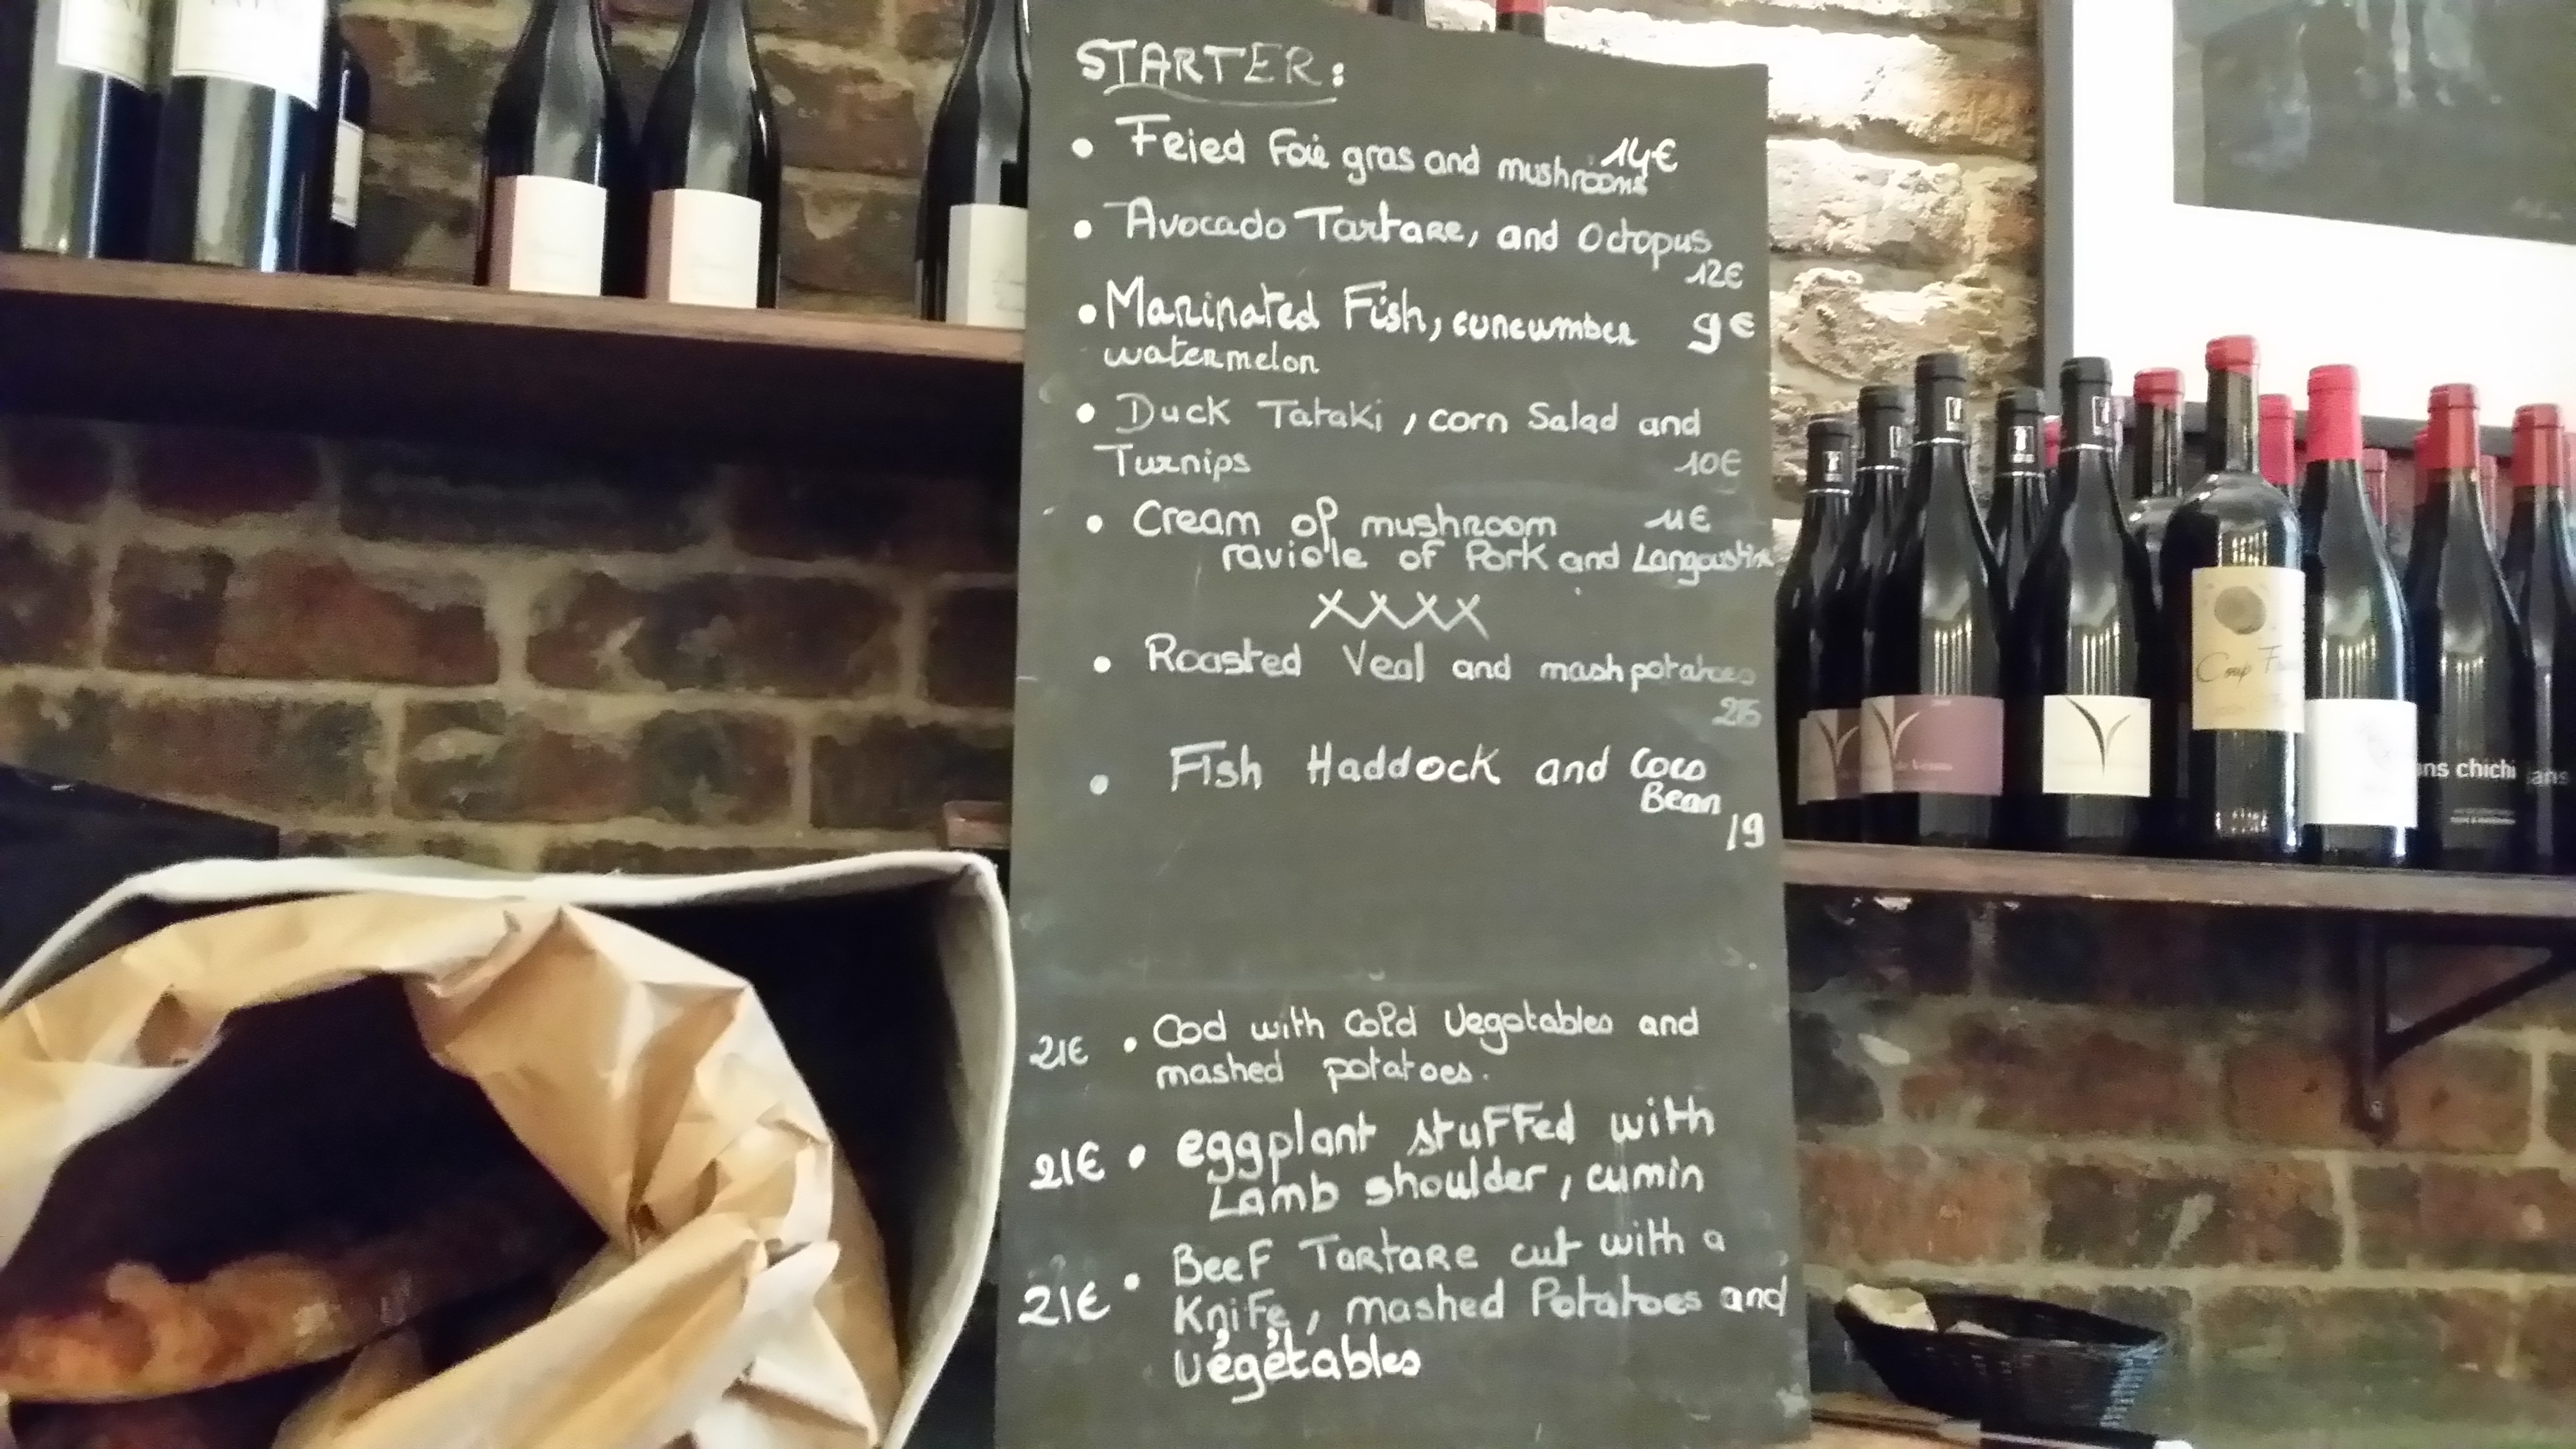 STARTER:
• Feied Foie gras and mushrooms 14€
• Avocado Tartare, and Octopus
12€
• Marinated Fish, cuncumber 9€
watermelon
• Duck Tataki, corn Salad and
Turnips 10€
• Cream of mushroom 11€
raviole of Pork and Langoustine
XXXX
• Roasted Veal and mash potatoes
• Fish Haddock and Coco
Bean
19
21€ • Cod with Cold Vegetables and
mashed potatoes.
21€ • eggplant stuffed with
Lamb shoulder, cumin
21€ • Beef Tartare cut with a
Knife, mashed Potatoes and
végétables
Coup
ns chichi